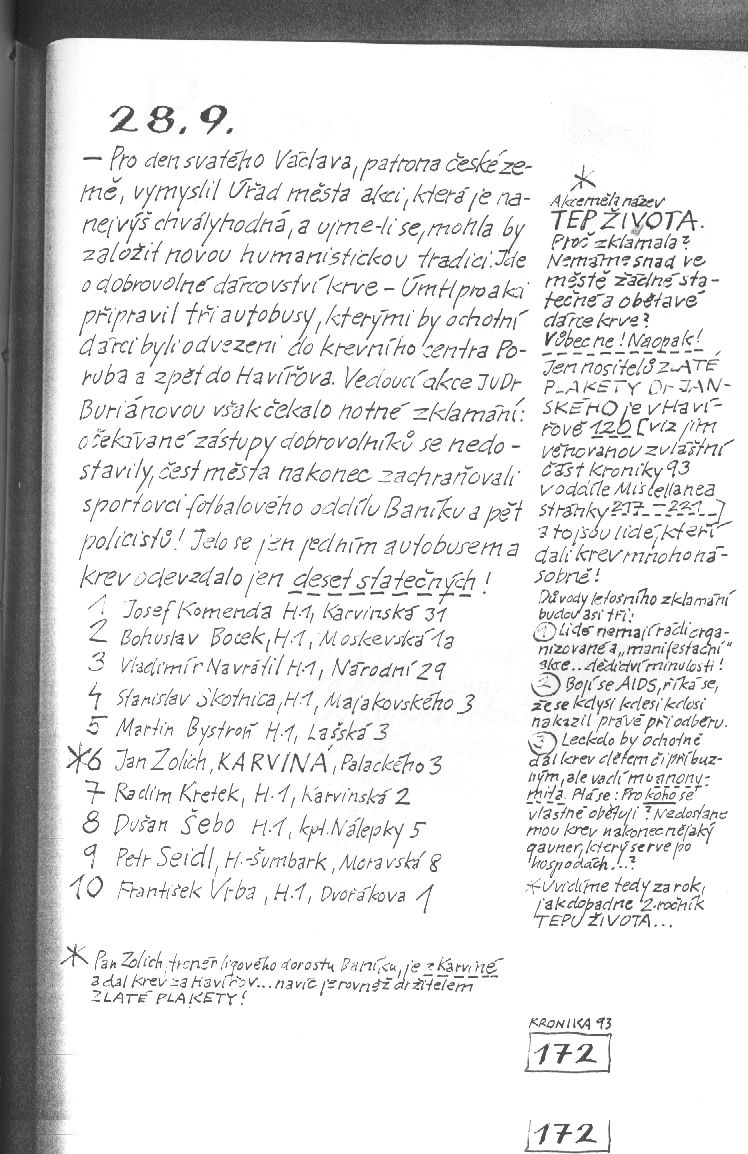 28.9.
– Pro den svatého Václava, patrona české ze-
mě, vymyslil Úřad města akci, která je na-
nejvýš chvályhodná, a ujme-li se, mohla by
založit novou humanistickou tradici. Jde
o dobrovolné dárcovství krve – ÚmH pro akci
připravil tři autobusy, kterými by ochotní
dárci byli odvezeni do krevního centra Po-
ruba a zpět do Havířova. Vedoucí akce JuDr
Buriánovou však čekalo notné zklamání:
očekávané zástupy dobrovolníků se nedo-
stavily, čest města nakonec zachraňovali
sportovci fotbalového oddílu Baníku a pět
policistů! Jelo se jen jedním autobusem a
krev odevzdalo jen deset statečných!
1 Josef Komenda H.1, Karvinská 31
2 Bohuslav Bocek, H.1, Moskevská 1a
3 Vladimír Navrátil H.1, Národní 29
4 Stanislav Skotnica, H.1, Majakovského 3
5 Martin Bystroň H.1, Lašská 3
*6 Jan Zolich, KARVINÁ, Palackého 3
7 Radim Kretek, H.1, Karvinská 2
8 Dušan Šebo H.1, kpt. Nálepky 5
9 Petr Seidl, H.-Šumbark, Moravská 8
10 František Vrba, H.1, Dvořákova 1
* Pan Zolich, trenér ligového dorostu Baníku, je z Karviné
a dal krev za Havířov... navíc je rovněž držitelem
ZLATÉ PLAKETY!
*
Akce měla název
TEP ŽIVOTA.
Proč zklamala?
Nemáme snad ve
městě žádné sta-
tečné a obětavé
dárce krve?
Vůbec ne! Naopak!
Jen nositelů ZLATÉ
PLAKETY Dr JAN-
SKÉHO je v Haví-
řově 120 [viz jim
věnovanou zvláštní
část Kroniky 93
v oddíle Miscellanea
stránky 217 – 221]
a to jsou lidé, kteří
dali krev mnohoná-
sobně!
Důvody letošního zklamání
budou asi tři:
1 Lidé nemají rádi orga-
nizované a „manifestační"
akce... dědictví minulosti!
2 Bojí se AIDS, říká se,
že se kdysi kdesi kdosi
nakazil právě při odběru.
3 Leckdo by ochotně
dal krev dětem či příbuz-
ným, ale vadí mu anony-
mita. Ptá se: Pro koho se
vlastně obětuji? Nedostane
mou krev nakonec nějaký
gauner, který se rve po
hospodách...?
* Uvidíme tedy za rok,
jak dopadne 2. ročník
TEPU ŽIVOTA...
KRONIKA 93
172
172